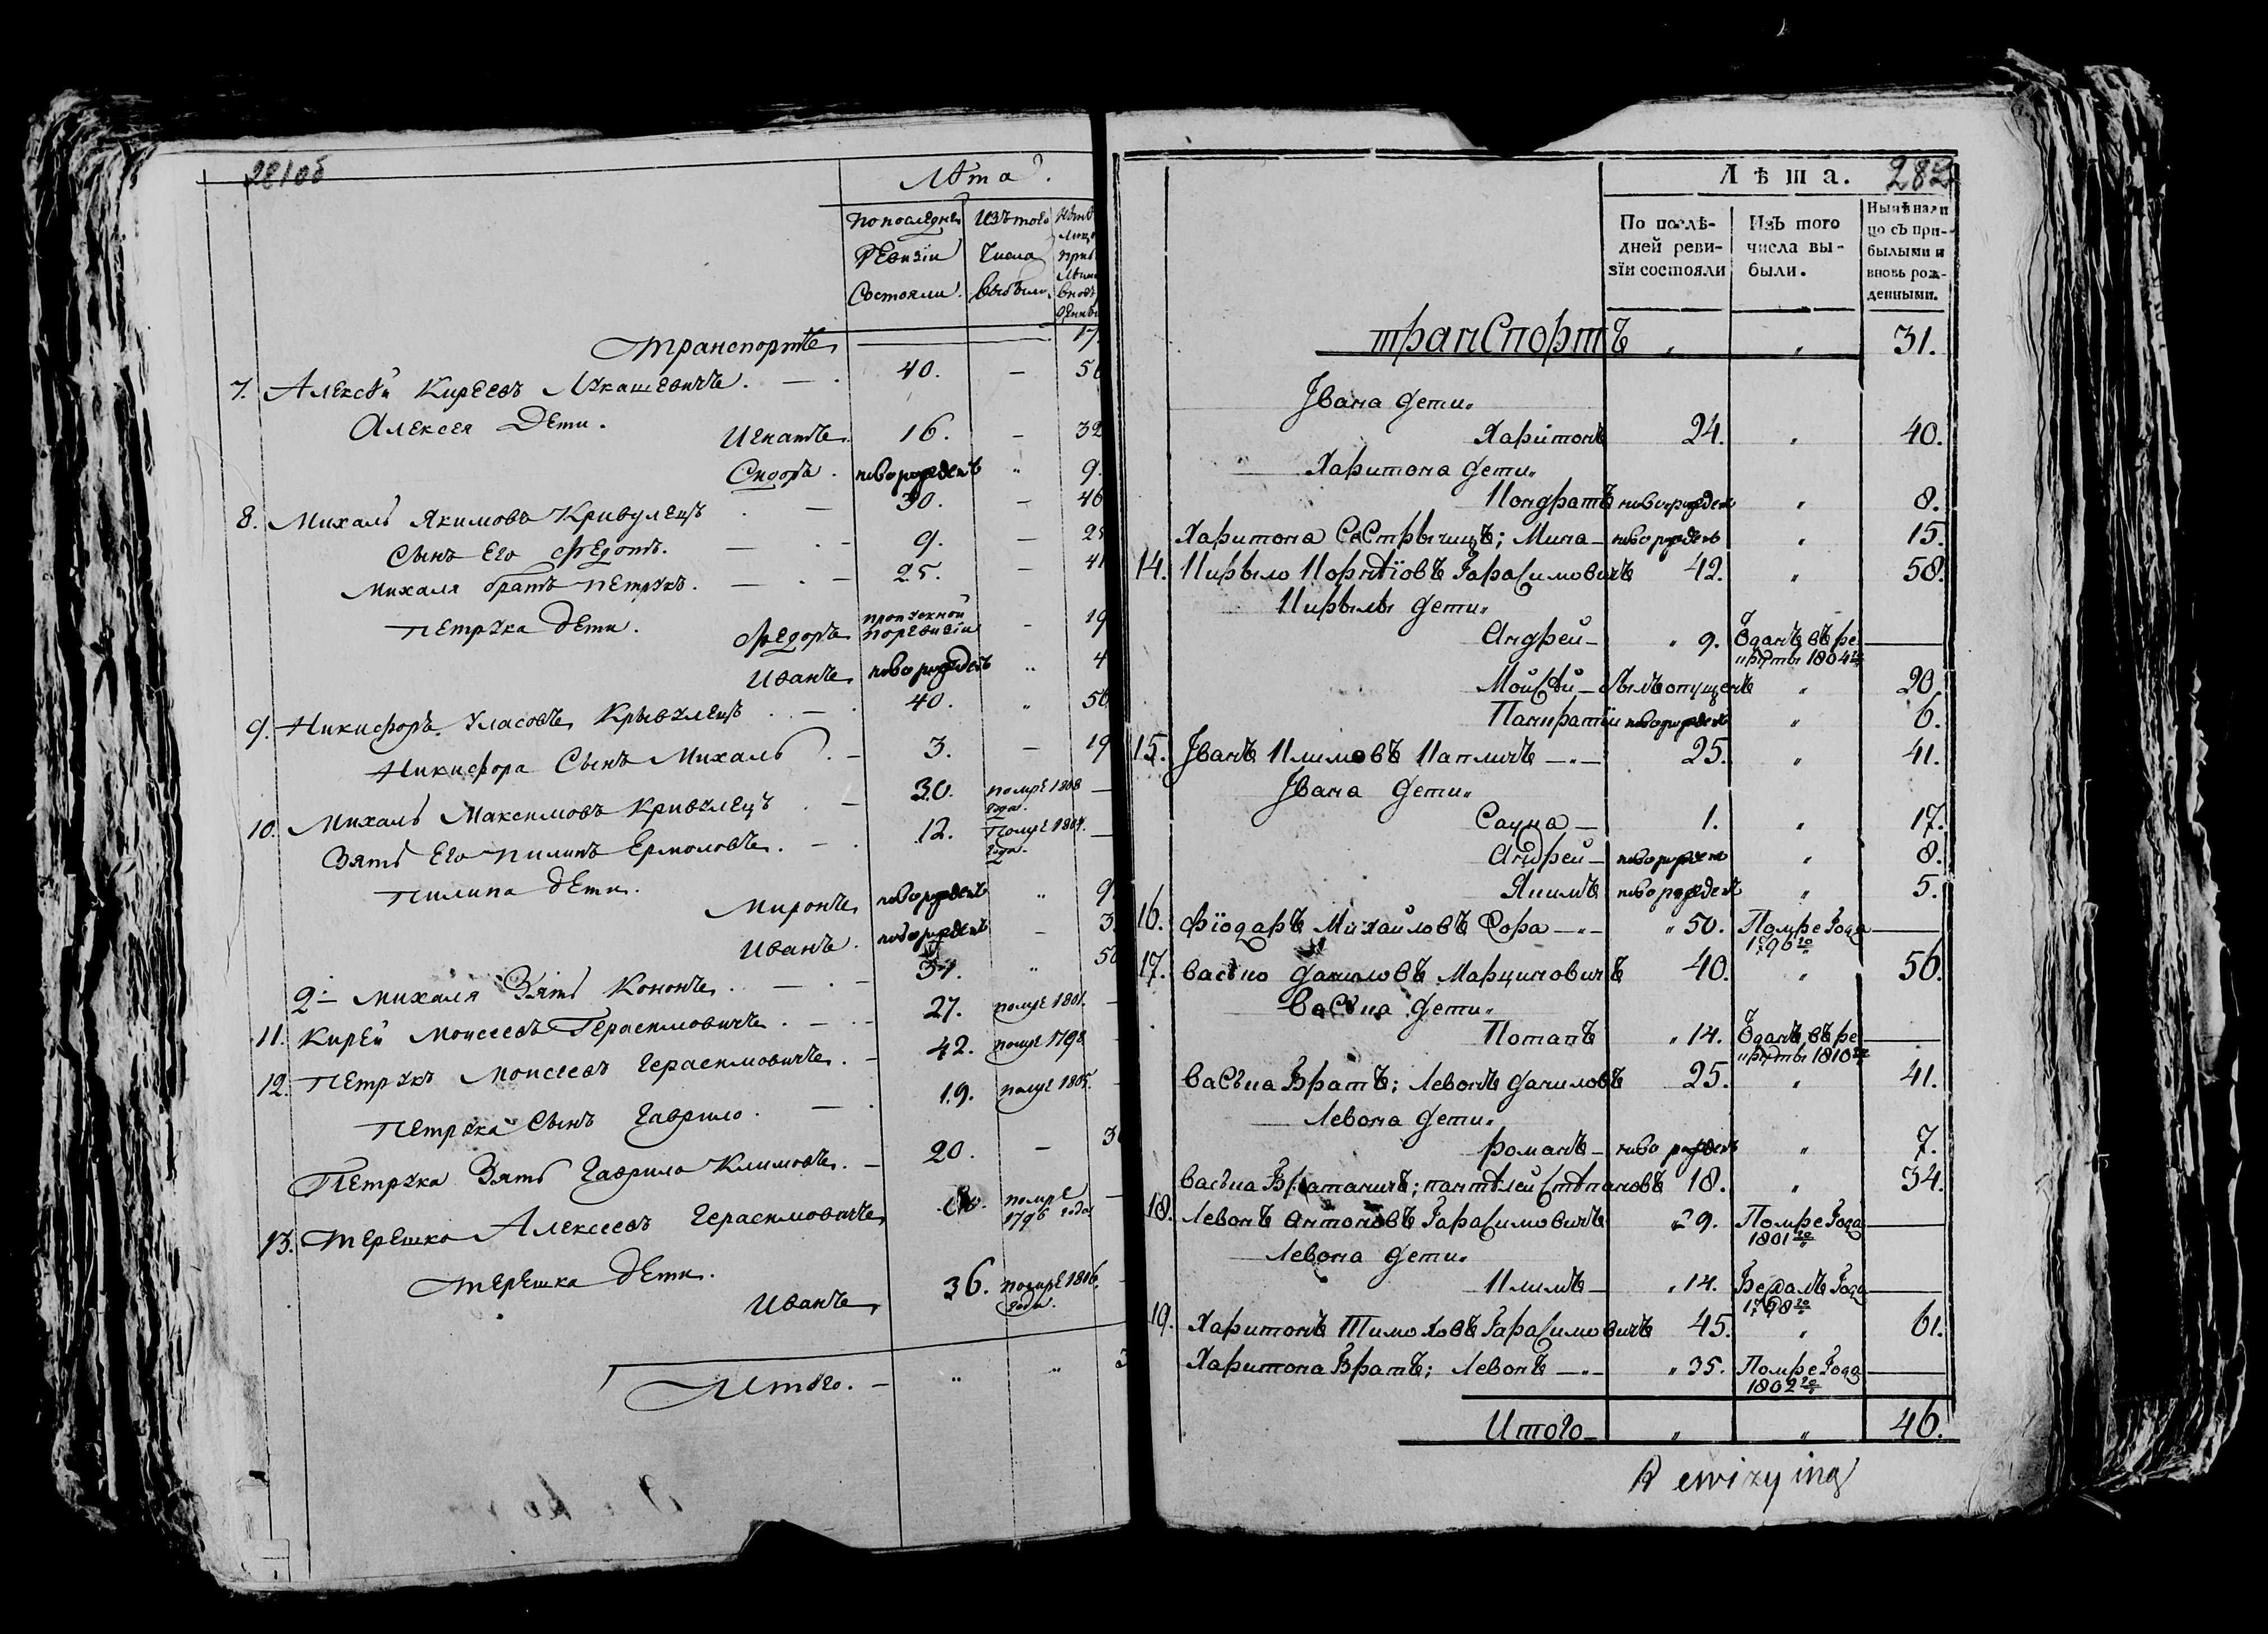 281об
Лѣта.
По последней Ревизіи Состояли.
Изъ того Числа выбыло.
транспортъ 17
7. Алексѣй Киреевъ Лукашевичъ. 40. — 56
Алексея Дети.
Игнатъ. 16. — 32
Сидоръ. новорожденъ „ 9.
8. Михаль Якимовъ Кривулецъ 30. — 46
Сынъ Его Федотъ. 9. — 25
Михаля братъ Петрукъ. 25. — 41
Петрука дети.
Федоръ пропускной по ревизіи — 19
Иванъ новорожденъ „ 4
9. Никифоръ Уласовъ Крывулецъ 40. „ 56
Никифора Сынъ Михаль 3. — 19
10. Михаль Максимовъ Кривулецъ 30. помре 1808 года. —
Зять Его Пилипъ Ермоловъ. 12. Помре 1807. года. —
Пилипа дети.
Миронъ новорожденъ „ 9
Иванъ. новорожденъ — 3.
2й Михаля Зять Кононъ. 34. „ 50
11. Кирей Моисеевъ Герасимовичъ. 27. помре 1801. —
12. Петрукъ Моисеевъ Герасимовичъ. 42. помре 1798 —
Петрука Сынъ Гаврило. 19. помре 1805. —
Петрука Зять Гаврило Климовъ. 20. — 3
13. Терешко Алексеевъ Герасимовичъ помре 1796 года —
Терешка дети.
Иванъ 36. помре 1816. года.
Итого. „ „ 3
282
Лѣта.
По послѣдней ревизіи состояли
Изъ того числа выбыли.
Нынѣ на лицо съ прибылыми и вновь рожденными.
транСпортъ „ „ 31.
Јвана дети.
Харитонъ 24. „ 40.
Харитона дети.
Кондратъ новорожденъ „ 8.
Харитона СеСтрычищъ; Мина новорожденъ „ 15.
14. Кирыло Корнѣіовъ Гарасимовичъ 42. „ 58.
Кирылы дети.
Андрей — „ 9. Одань въ рекруты 1804го —
Мойсѣй — былъ опущенъ „ 20.
Панкратій новорожденъ „ 6.
15. Јванъ Климовъ Капличъ — 25. „ 41.
Јвана дети.
Саука — 1. „ 17.
Андрей — новорожденъ „ 8.
Якимъ новорожденъ „ 5.
16. Фіодаръ Михайловъ Сора — „ 50. Помре Года 1796го —
17. Васько даниловъ Марциновичъ 40. „ 56.
ваСька дети.
Потапъ „ 14. Одань въ рекруты 1810го —
ваСька Братъ; Левонъ даниловъ 25. „ 41.
Левона дети.
Романъ — ново рожденъ „ 7.
васька Братаничъ; пантѣлей Стѣпановъ 18. „ 34.
18. Левонъ Антоновъ Гарасимовичъ 29. Помре Года 1801го —
Левона дети.
Климъ — „ 14. Бежалъ Года 1798го —
19. Харитонъ Тимоховъ Гарасимовичъ 45. „ 61.
Харитона Братъ; Левонъ — „ 35. Помре Года 1802го —
Итого — „ „ 46.